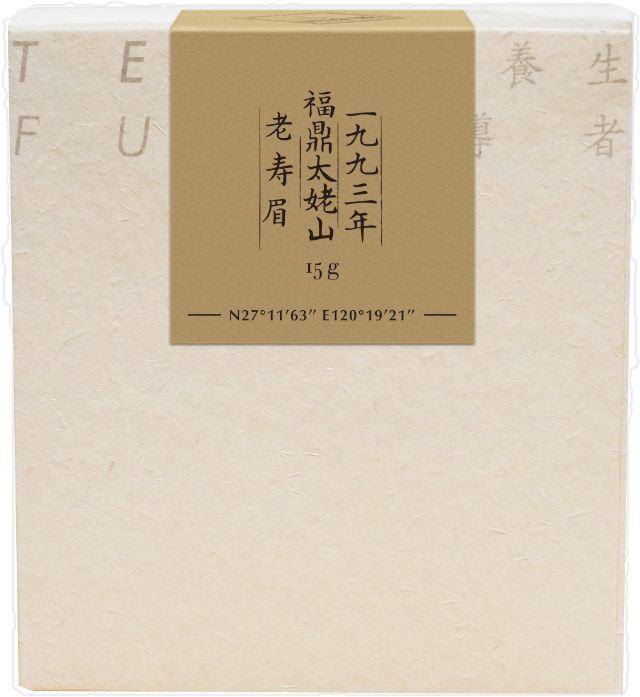 T E 養 生
F U 導 者
一九九三年
福鼎太姥山
老寿眉
15g
N27°11′63″ E120°19′21″